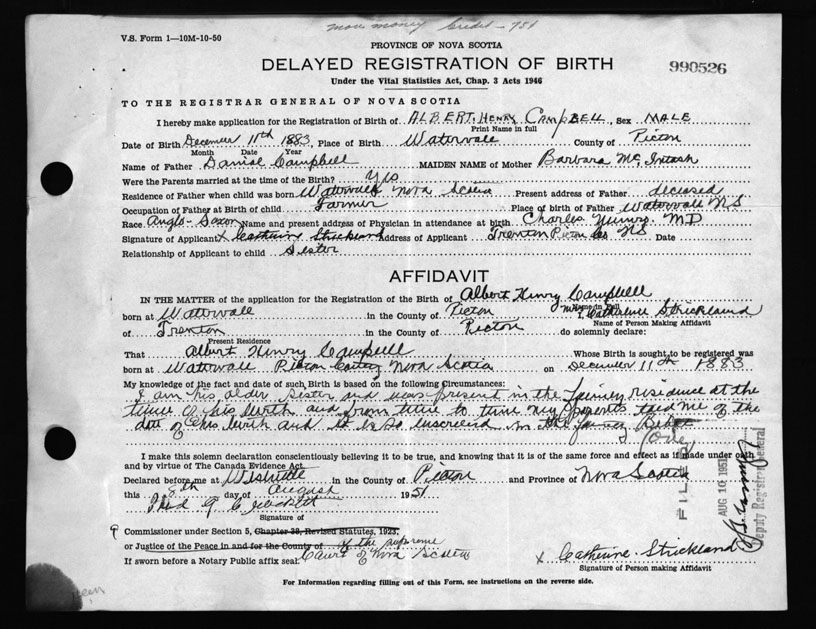 more money credit - 751
V.S. Form 1—10M-10-50
PROVINCE OF NOVA SCOTIA
DELAYED REGISTRATION OF BIRTH
990526
Under the Vital Statistics Act, Chap. 3 Acts 1946
TO THE REGISTRAR GENERAL OF NOVA SCOTIA
I hereby make application for the Registration of Birth of ALBERT HENRY CAMPBELL, Sex MALE
Print Name in full
Date of Birth December 11th 1883, Place of Birth Watervale County of Picton
Month Date Year
Name of Father Daniel Campbell MAIDEN NAME of Mother Barbara Mc Intosh
Were the Parents married at the time of the Birth? Yes
Residence of Father when child was born Watervale Nova Scotia Present address of Father deceased
Occupation of Father at Birth of child Farmer Place of birth of Father Watervale N S
Race Anglo-Saxon Name and present address of Physician in attendance at birth Charles Munro. MD
Signature of Applicant x Catherine Strickland Address of Applicant Trenton Picton Co NS Date
Relationship of Applicant to child Sister
AFFIDAVIT
IN THE MATTER of the application for the Registration of the Birth of Albert Henry Campbell
Name in Full
born at Watervale in the County of Picton I, Mrs Catherine Strickland
Name of Person Making Affidavit
of Trenton in the County of Picton do solemnly declare:
Present Residence
That Albert Henry Campbell Whose Birth is sought to be registered was
born at Watervale Picton County Nova Scotia on December 11th 1883
My knowledge of the fact and date of such Birth is based on the following Circumstances:
I am his older sister and was present in the family residence at the
time of his birth and from time to time my parents told me of the
date of his birth and it is so inscribed in the family Bible
I make this solemn declaration conscientiously believing it to be true, and knowing that it is of the same force and effect as if made under oath
and by virtue of The Canada Evidence Act.
Declared before me at Westville in the County of Picton and Province of Nova Scotia
this 8th day of August 1951
Signature of
Commissioner under Section 5, Chapter 38, Revised Statutes, 1923.
or Justice of the Peace in and for the County of of the supreme
If sworn before a Notary Public affix seal. Court of Nova Scotia
x Catherine Strickland
Signature of Person making Affidavit
FILED
AUG 10 1951
Deputy Registrar General
For Information regarding filling out of this Form, see instructions on the reverse side.